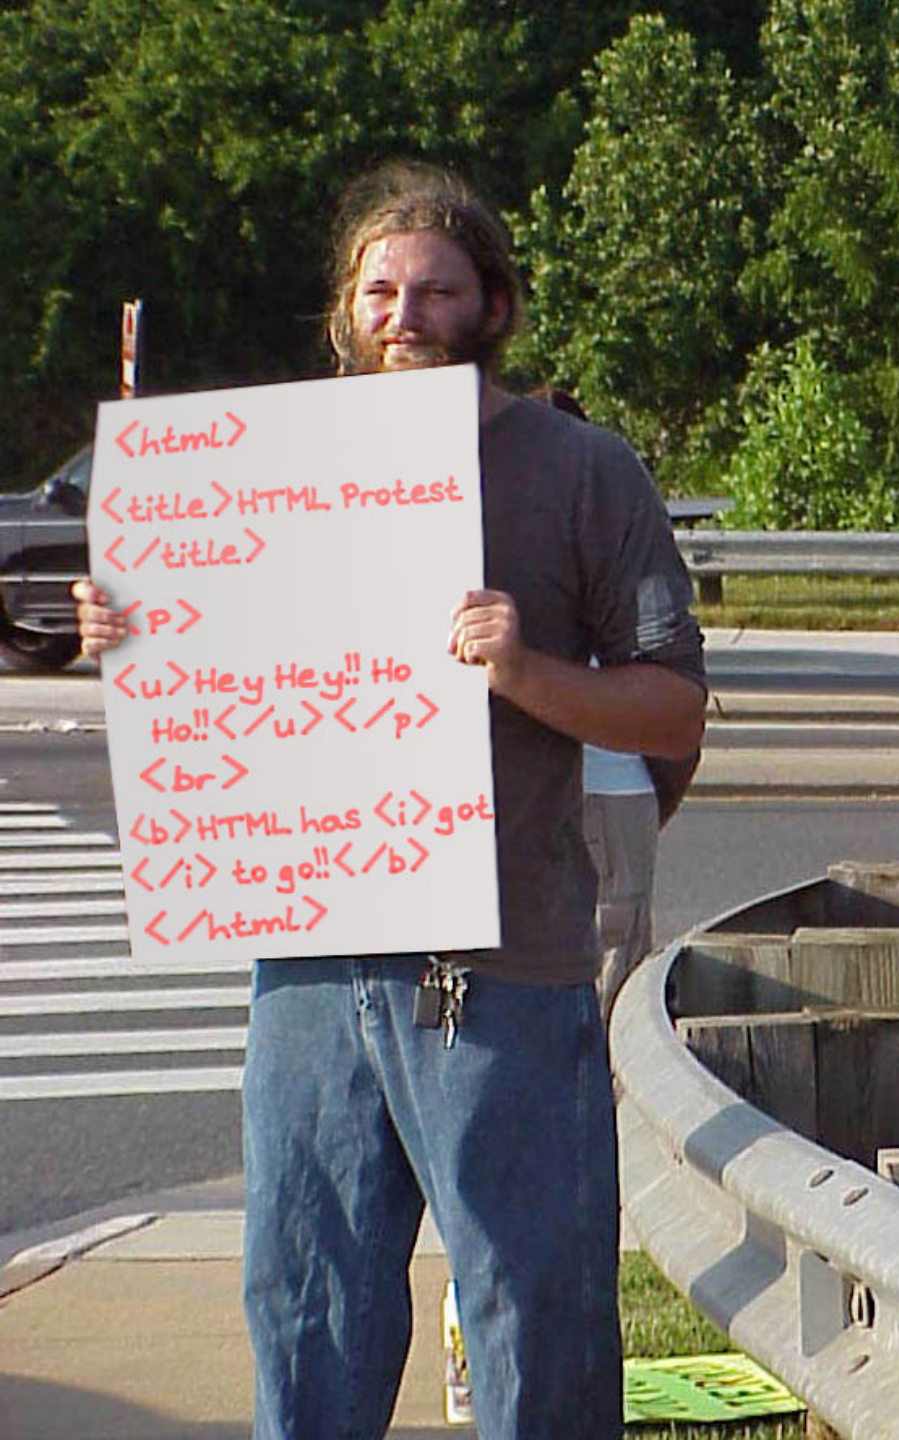 <html>
<title>HTML Protest
</title>
<p>
<u>Hey Hey!! Ho
Ho!!</u></p>
<br>
<b>HTML has <i>got
</i> to go!!</b>
</html>